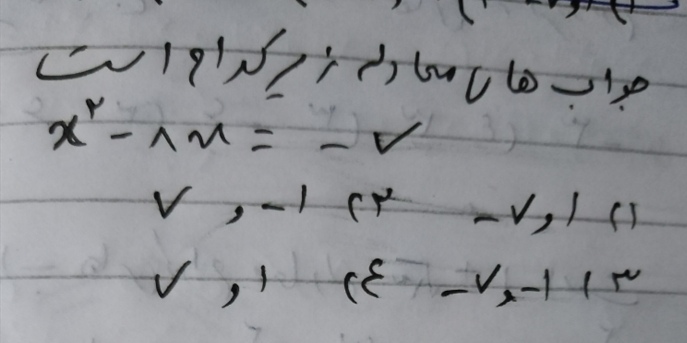 جواب های معادله زیر کدام است
x² - ۸x = - ۷
۱) ۱ و ۷- ۲) ۱- و ۷
۳) ۱- و ۷- ۴) ۱ و ۷